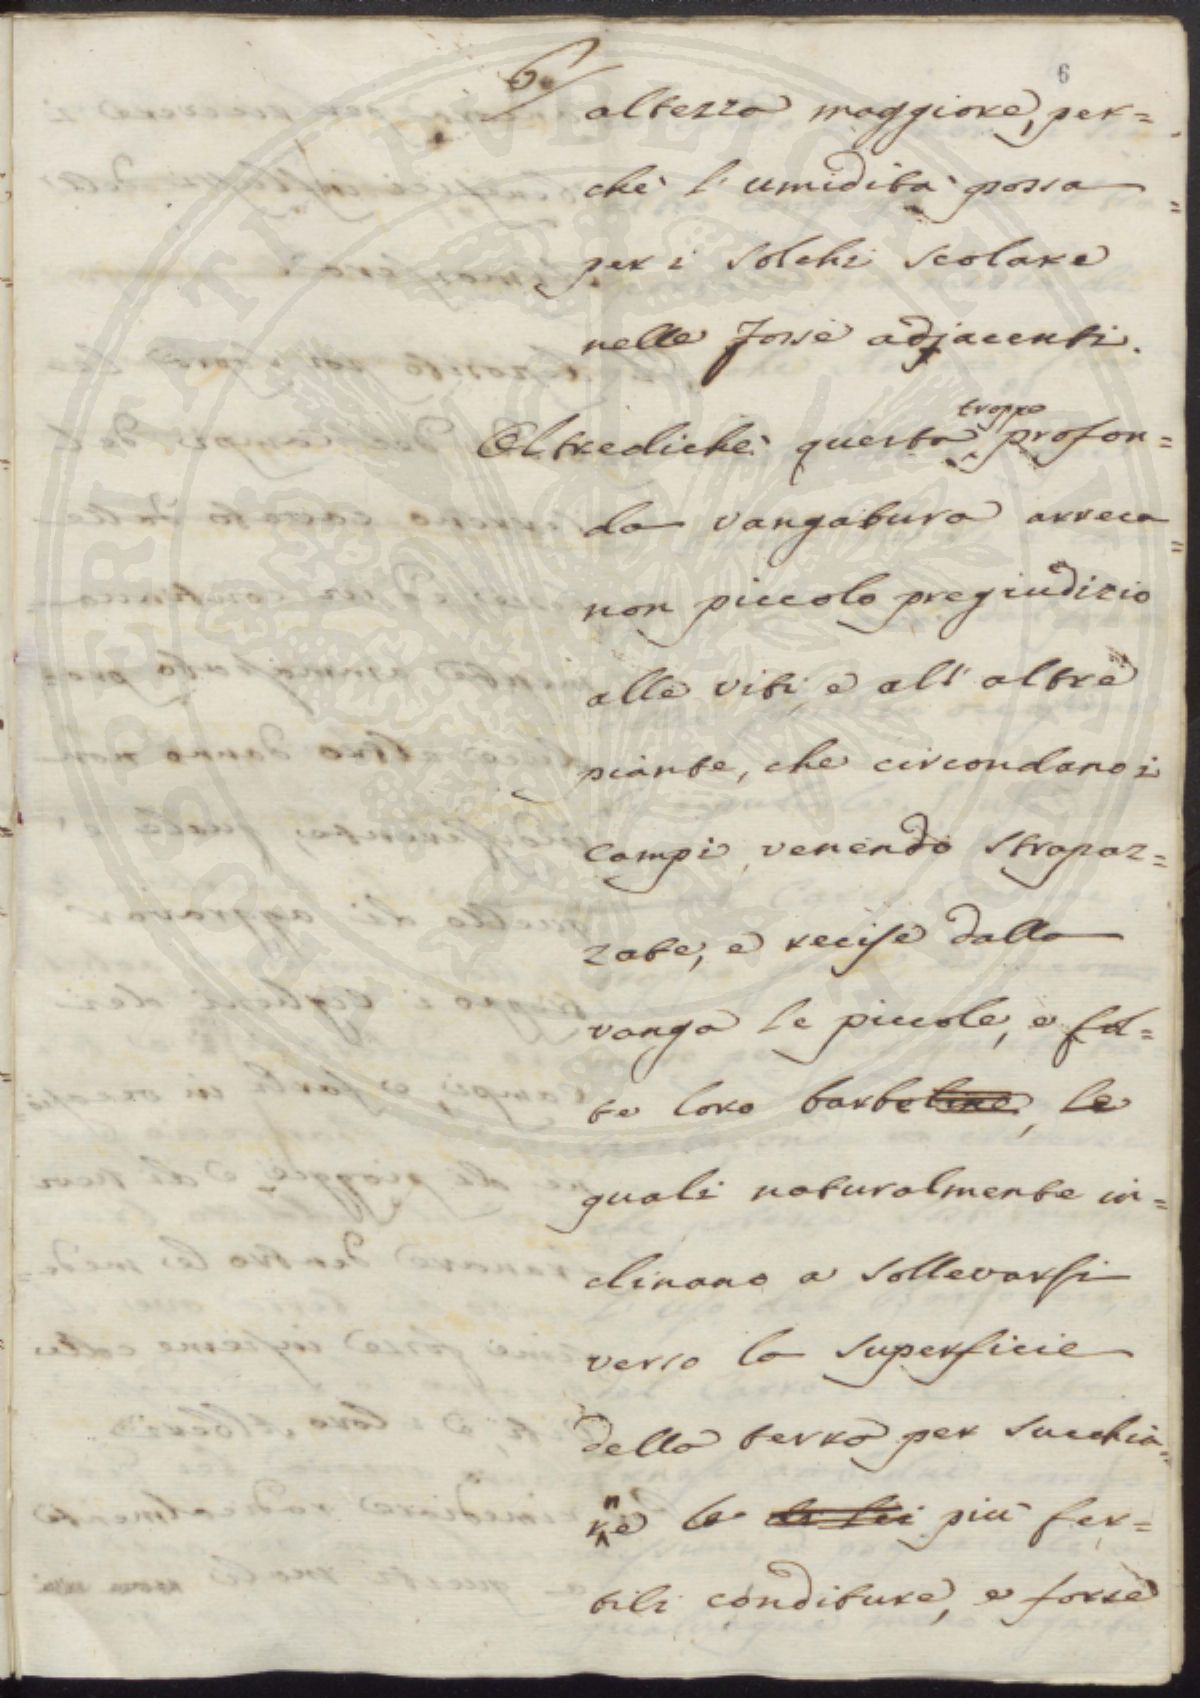 6
6
altezza maggiore, per=
chè l'umidità possa
per i solchi scolare
nelle fosse adjacenti.
Oltrediche questa troppo profon=
da vangatura arreca
non piccolo pregiudizio
alle viti, e all'altre
piante, che circondano i
campi, venendo strapaz=
zate, e recise dalla
vanga le piccole, e fol=
te loro barboline, le
quali naturalmente in=
clinano a sollevarsi
verso la superficie
della terra per succhia=
rne le di lei più fer=
tili conditure, e forse